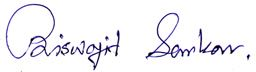 Biswajit Sarkar.